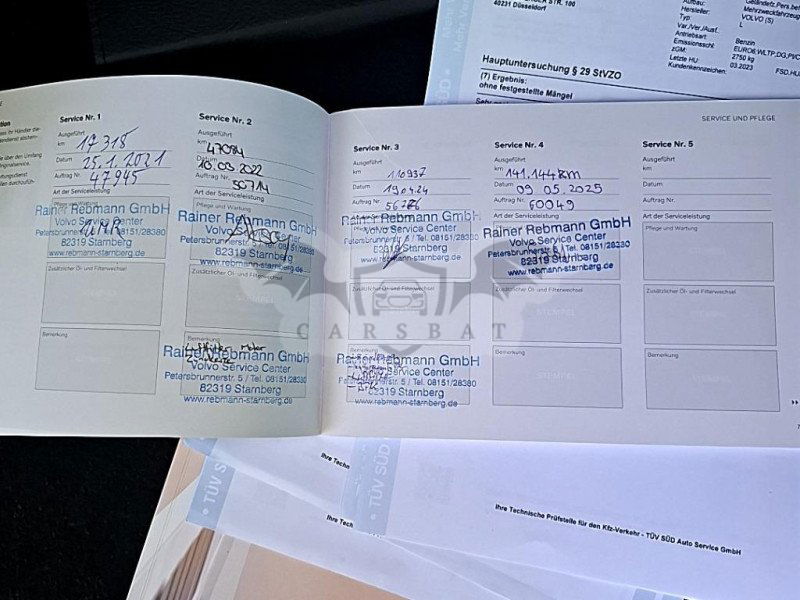 40231 Düsseldorf
Aufbau:
Hersteller:
Typ:
Var./Ver./Ausf.:
Antriebsart
Emissionsschl.
zGM:
Letzte HU:
Kundenkennzeichen:
VOLVO (S)
Benzin
2750 kg
03.2023
Hauptuntersuchung § 29 StVZO
(7) Ergebnis:
ohne festgestellte Mängel
SERVICE UND PFLEGE
Service Nr. 1
Ausgeführt
km 17318
Datum 25.1.2021
Auftrag Nr. 47945
Art der Serviceleistung
Pflege und Wartung
Rainer Rebmann GmbH
Volvo Service Center
Petersbrunnerstr. 5 / Tel. 08151/28380
82319 Starnberg
www.rebmann-starnberg.de
Zusätzlicher Öl- und Filterwechsel
Bemerkung
Service Nr. 2
Ausgeführt
km 47084
Datum 10.03.2022
Auftrag Nr. 50714
Art der Serviceleistung
Pflege und Wartung
Rainer Rebmann GmbH
Volvo Service Center
Petersbrunnerstr. 5 / Tel. 08151/28380
82319 Starnberg
www.rebmann-starnberg.de
Zusätzlicher Öl- und Filterwechsel
Bemerkung
Rainer Rebmann GmbH
Volvo Service Center
Petersbrunnerstr. 5 / Tel. 08151/28380
82319 Starnberg
www.rebmann-starnberg.de
Service Nr. 3
Ausgeführt
km 110937
Datum 19.04.24
Auftrag Nr.
Art der Serviceleistung
Rainer Rebmann GmbH
Volvo Service Center
Petersbrunnerstr. 5 / Tel. 08151/28380
82319 Starnberg
www.rebmann-starnberg.de
Zusätzlicher Öl- und Filterwechsel
Bemerkung
Rainer Rebmann GmbH
Volvo Service Center
Petersbrunnerstr. 5 / Tel. 08151/28380
82319 Starnberg
www.rebmann-starnberg.de
Service Nr. 4
Ausgeführt
km 141.144km
Datum 09.05.2025
Auftrag Nr. 60949
Art der Serviceleistung
Rainer Rebmann GmbH
Volvo Service Center
Petersbrunnerstr. 5 / Tel. 08151/28380
82319 Starnberg
www.rebmann-starnberg.de
Zusätzlicher Öl- und Filterwechsel
STEMPEL
Bemerkung
STEMPEL
Service Nr. 5
Ausgeführt
km
Datum
Auftrag Nr.
Art der Serviceleistung
Pflege und Wartung
Zusätzlicher Öl- und Filterwechsel
Bemerkung
CARSBAT
TÜV SÜD
Ihre Techn
TÜV SÜD
Ihre Techn
Ihre Technische Prüfstelle für den Kfz-Verkehr - TÜV SÜD Auto Service GmbH